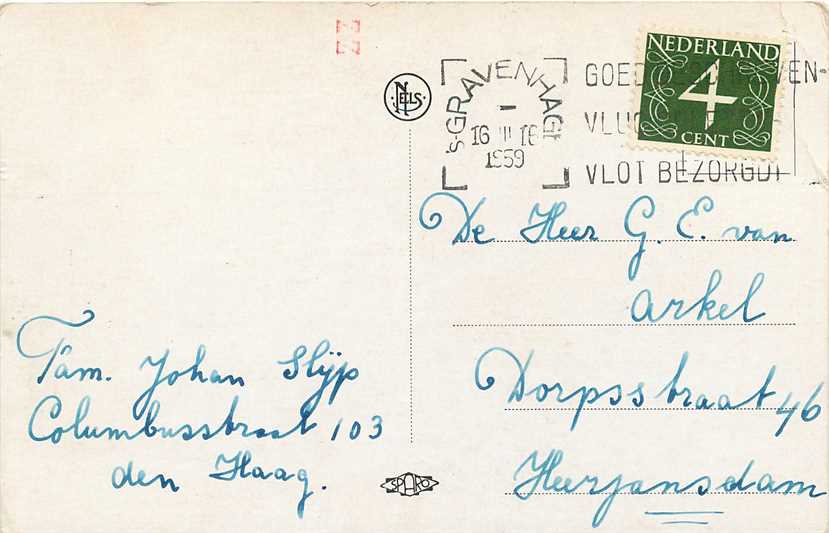 NELS
'S-GRAVENHAGE
16 III 16
1959
GOED
VLUG
VLOT BEZORGD!
NEDERLAND
4
CENT
De Heer G. E. van
Arkel
Dorpsstraat 46
Heerjansdam
Fam. Johan Slijp
Columbusstraat 103
den Haag.
SPARO